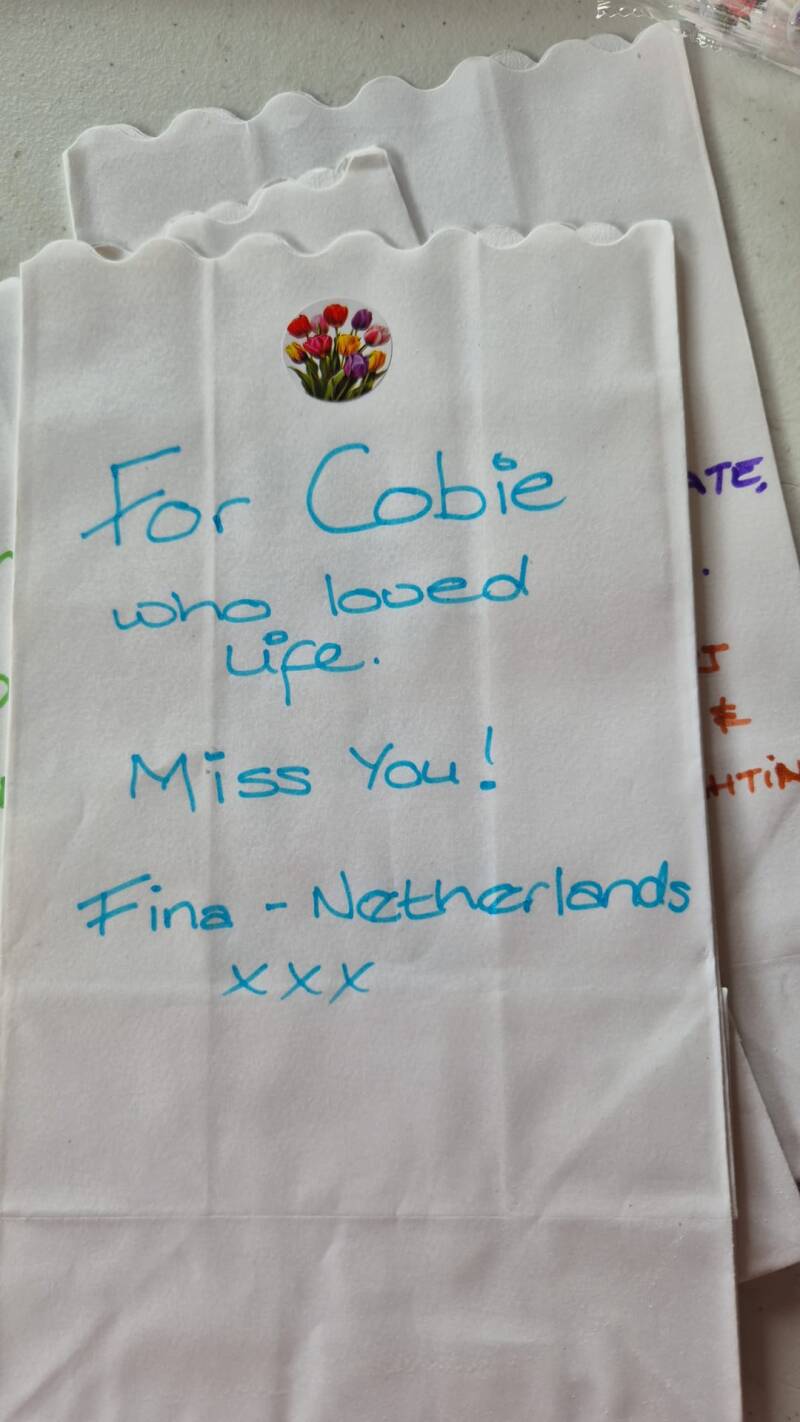 For Cobie
who loved
Life.
Miss You!
Fina - Netherlands
xxx
ATE,
J
&
HTIN